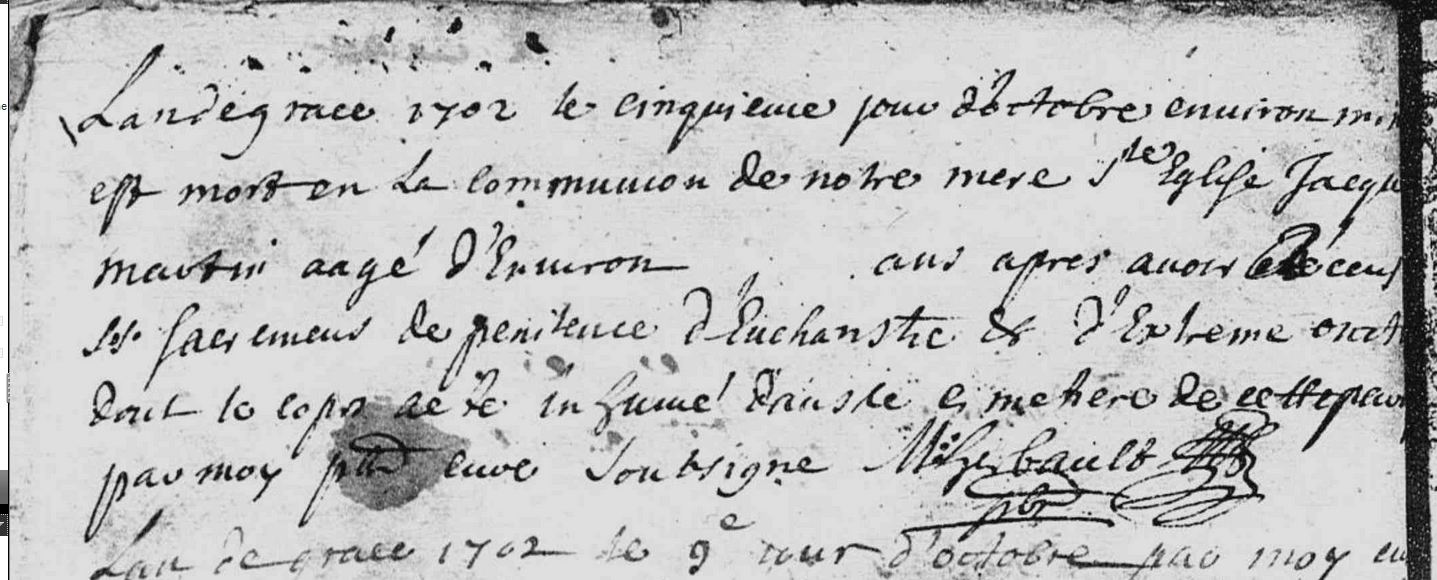 Lan de grace 1702 le cinquieme jour d'octobre enuiron
est mort en La communion de notre mere Ste Eglise Jacqu
martin aagé d'Enuiron ans apres auoir receus
sts sacremens de penitence d'Eucharistie & d'Extreme onct
dont le cops a eté inhumé dans le cimetiere de cette par
par moy pbr cure soubsigne M. Herbault
pbr
Lan de grace 1702 le 9e iour d'octobre par moy cu